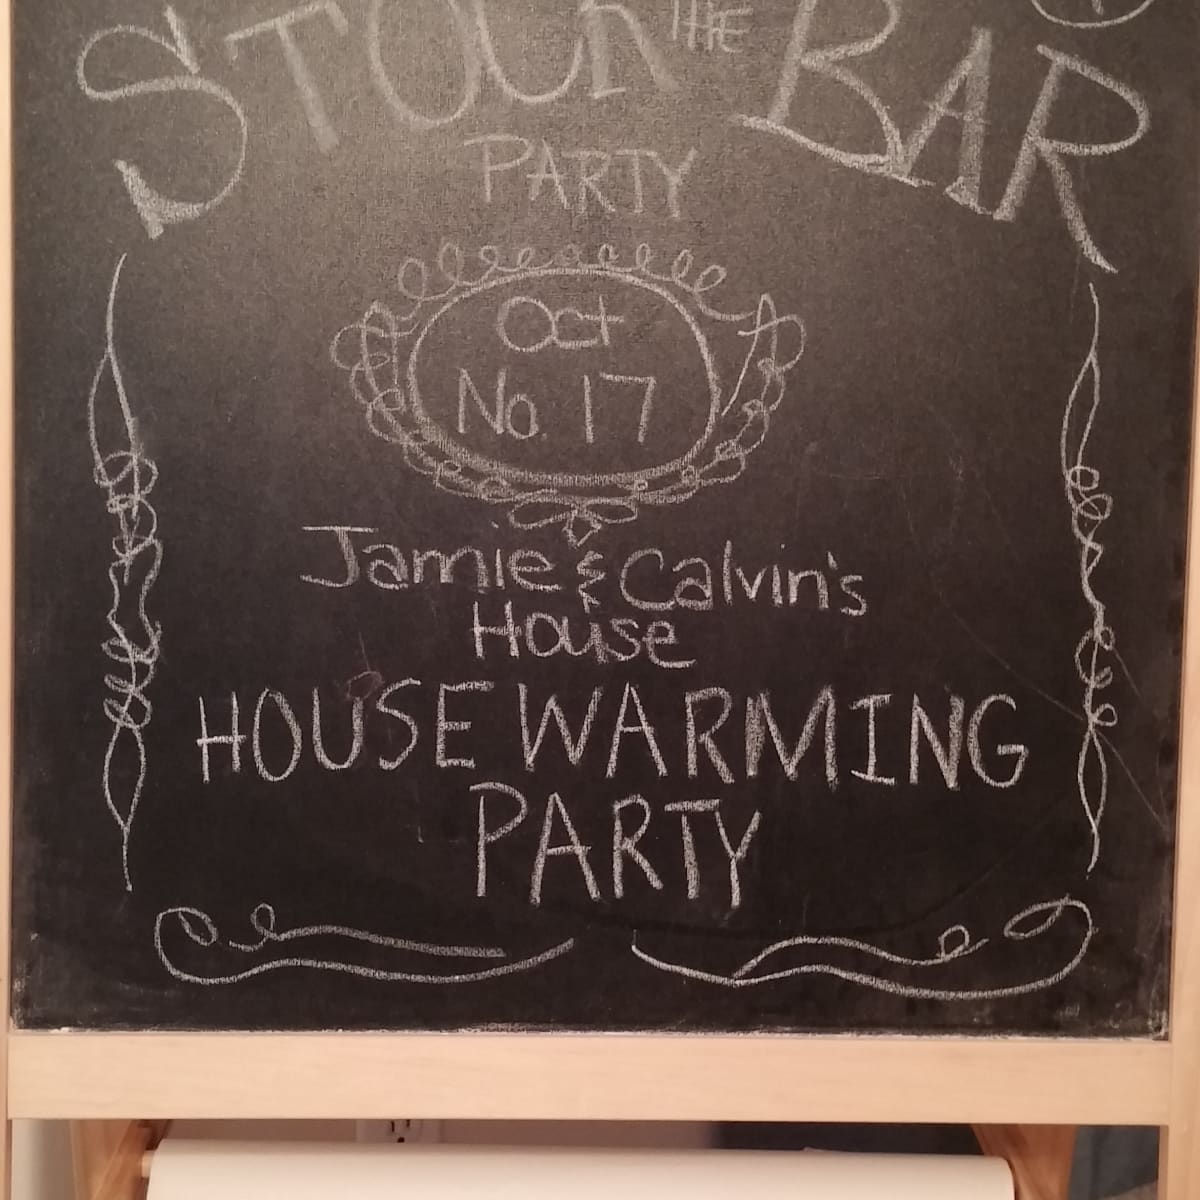 STOCK THE BAR
PARTY
Oct
No. 17
Jamie & Calvin's
House
HOUSE WARMING
PARTY